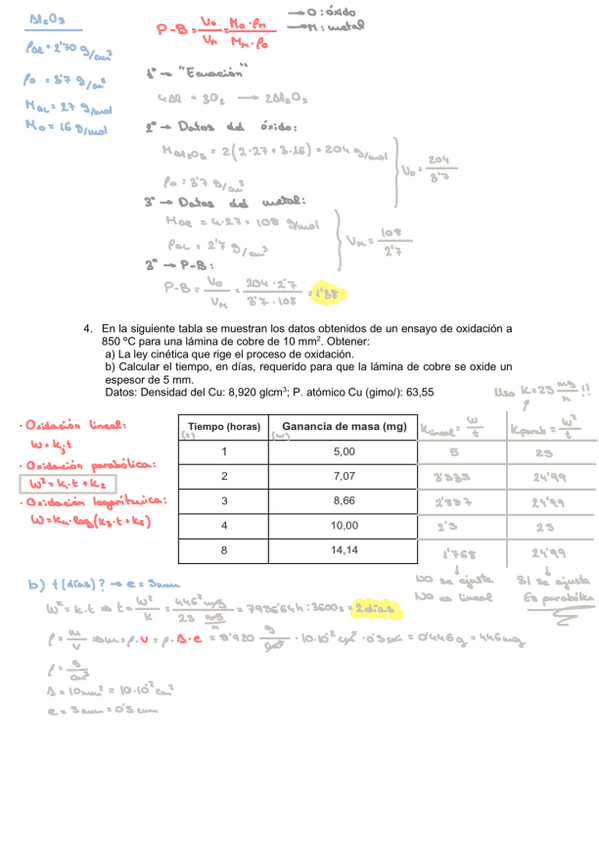 Al₂O₃
ρAl = 2'70 g/cm³
ρo = 3'7 g/cm³
MAl = 27 g/mol
Mo = 16 g/mol
P-B = Vo/VM = Mo·ρM/MM·ρo
→ O: óxido
→ M: metal
1º → "Ecuación"
4Al + 3O₂ → 2Al₂O₃
2º → Datos del óxido:
MAl₂O₃ = 2(2·27+3·16) = 204 g/mol
ρo = 3'7 g/cm³
Vo = 204/3'7
3º → Datos del metal:
MAl = 4·27 = 108 g/mol
ρAl = 2'7 g/cm³
VM = 108/2'7
3º → P-B:
P-B = Vo/VM = 204·2'7/3'7·108 = 1'38
4. En la siguiente tabla se muestran los datos obtenidos de un ensayo de oxidación a
850 ºC para una lámina de cobre de 10 mm². Obtener:
a) La ley cinética que rige el proceso de oxidación.
b) Calcular el tiempo, en días, requerido para que la lámina de cobre se oxide un
espesor de 5 mm.
Datos: Densidad del Cu: 8,920 glcm³; P. atómico Cu (gimo/): 63,55
Uso K=25 mg/h !!
· Oxidación lineal:
w = k₃t
· Oxidación parabólica:
w² = k₁·t + k₂
· Oxidación logarítmica:
w = k₄·log(k₃·t + k₅)
Tiempo (horas) Ganancia de masa (mg) Klineal = w/t Kparab = w²/t
(t) (w)
1 5,00 5 25
2 7,07 3'535 24'99
3 8,66 2'887 24'99
4 10,00 2'5 25
8 14,14 1'768 24'99
No se ajusta Sí se ajusta
No es lineal Es parabólica
b) t (días)? → e = 5mm
w² = k·t ⇒ t = w²/k = 446² mg/25 mg/h = 7956'64h : 3600s = 2 días
ρ = m/v ⇒ m = ρ·V = ρ·A·e = 8'920 g/cm³ · 10·10⁻² cm² · 0'5 cm = 0'446 g = 446 mg
ρ = g/cm³
A = 10mm² = 10·10⁻² cm²
e = 5mm = 0'5 cm